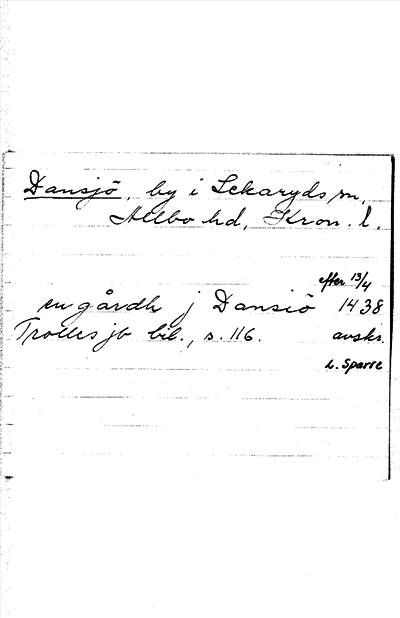 Dansjö, by i Lekaryds sn,
Allbo hd, Kron. l.
efter 13/4
en gårdh j Dansiö 1438
Trolles jb bil., s. 116. avskr.
L. Sparre